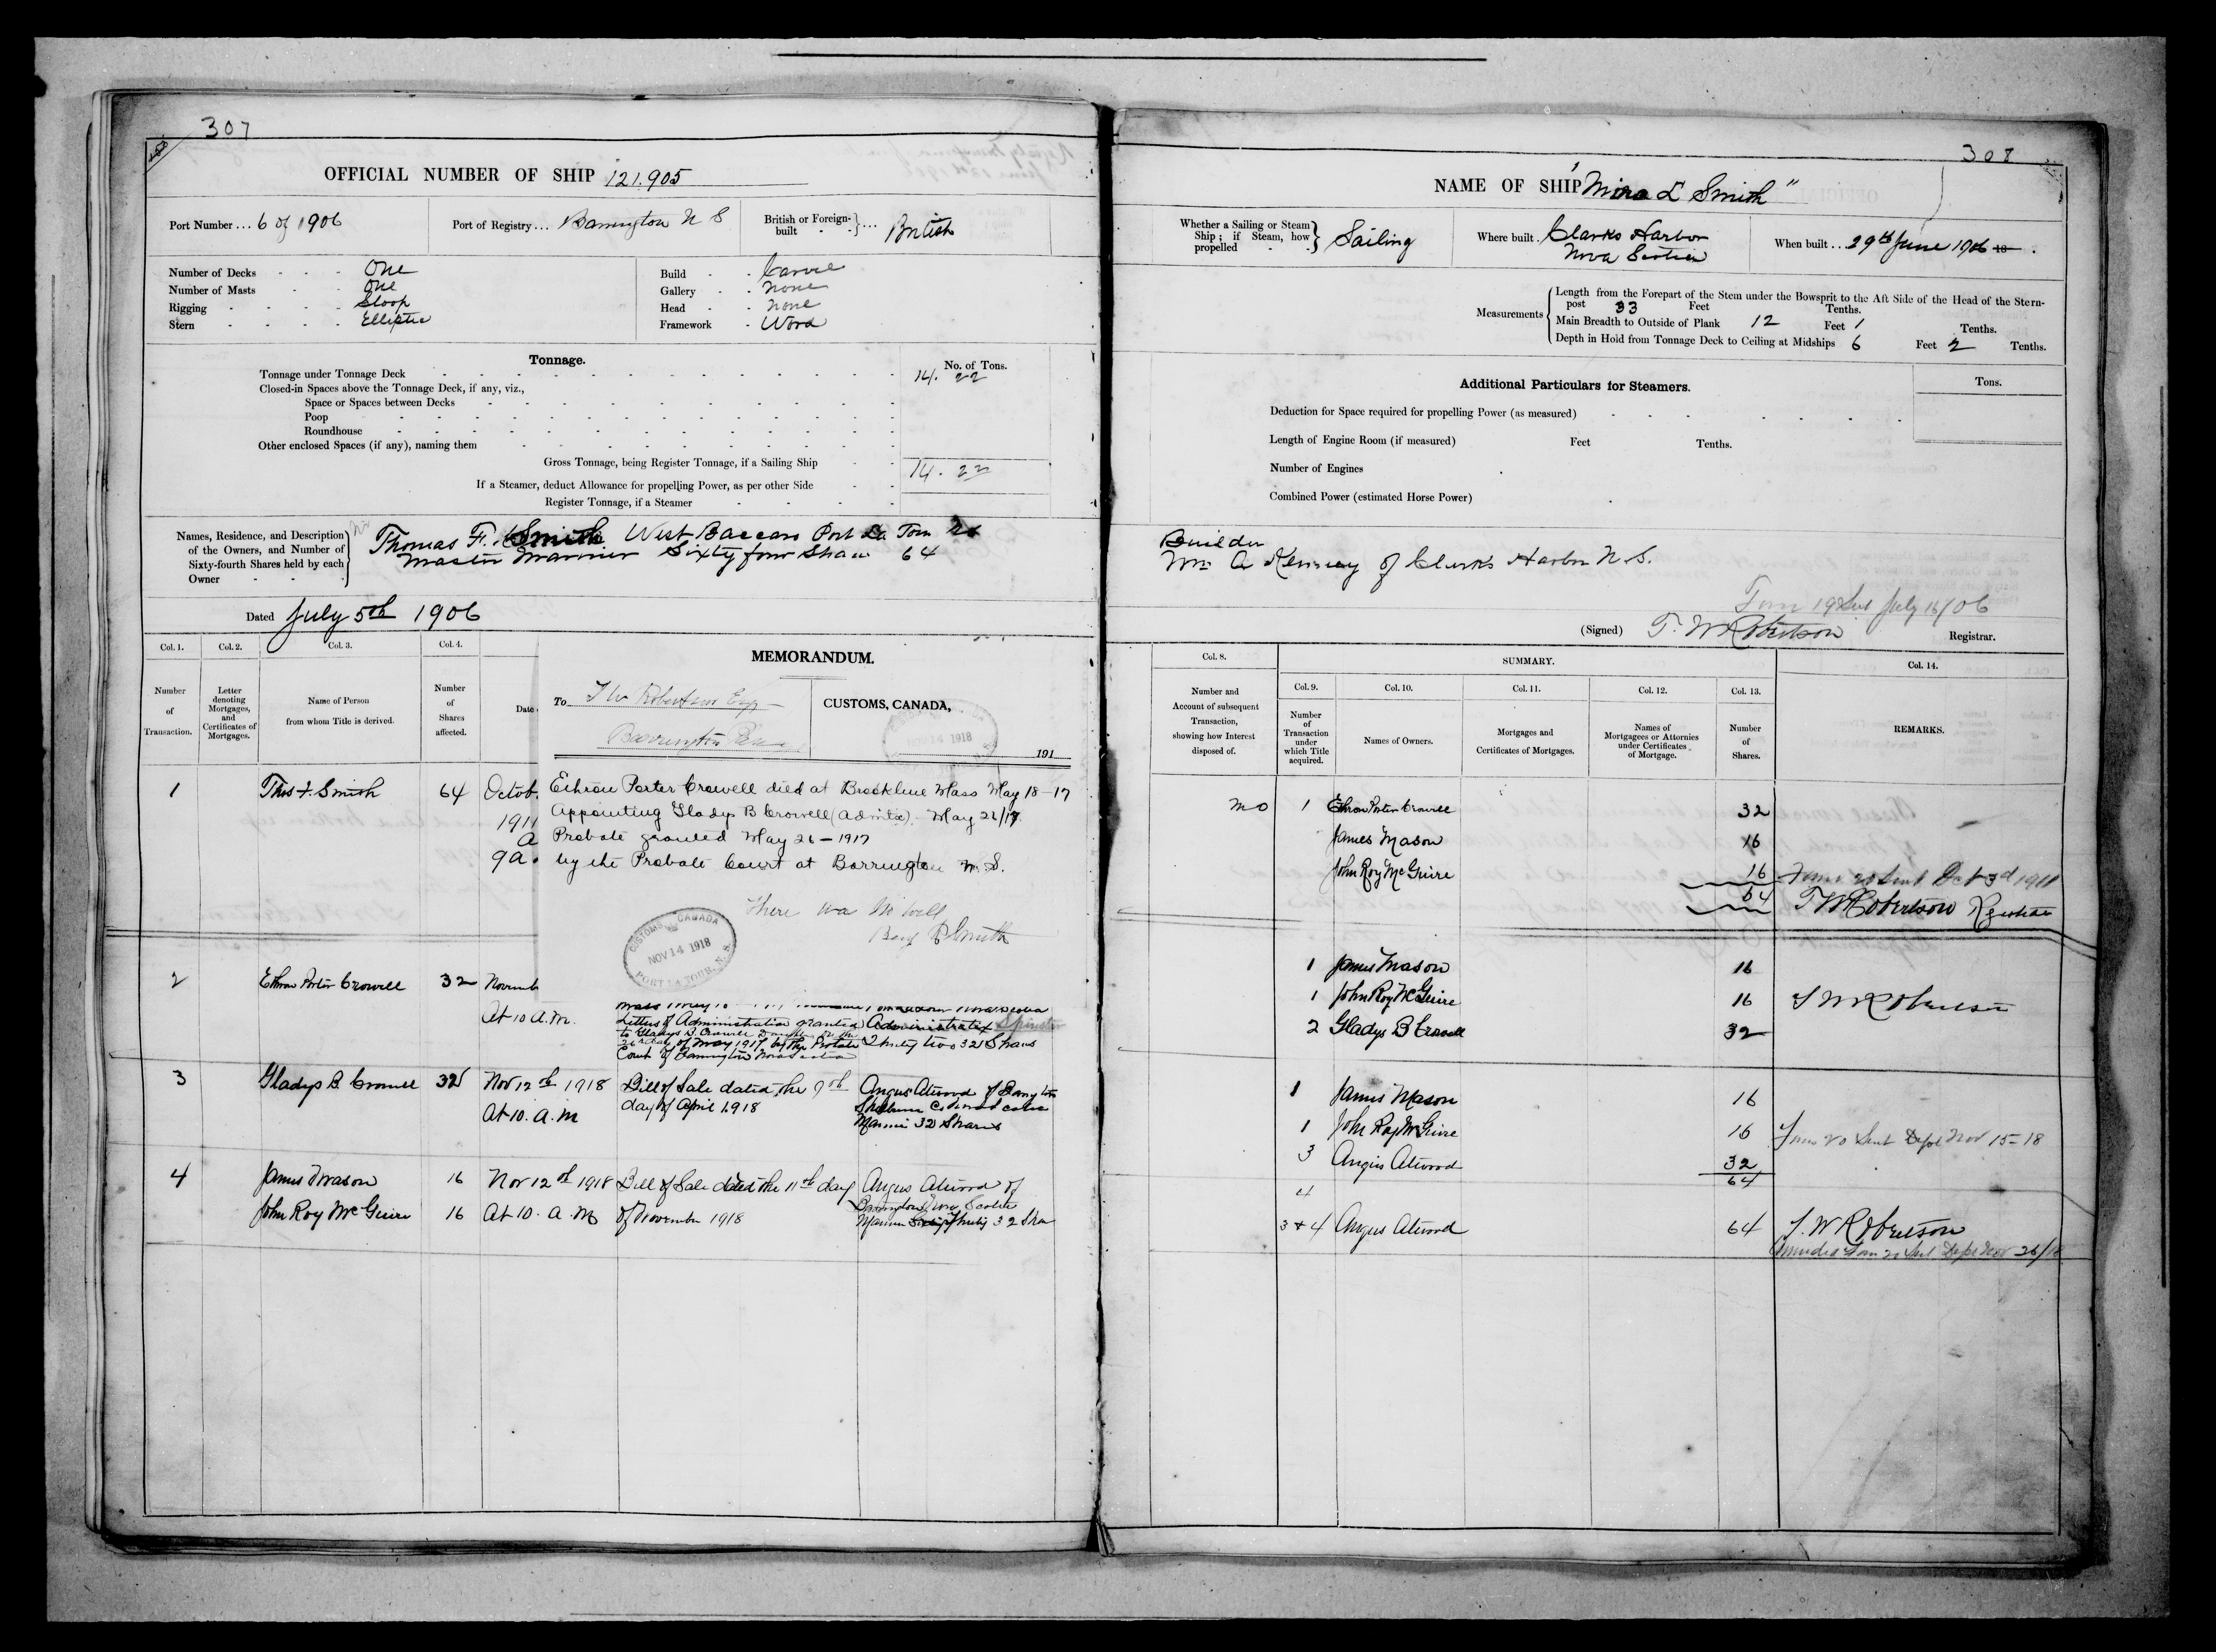 307
OFFICIAL NUMBER OF SHIP 121.905
Port Number ... 6 of 1906
Port of Registry ... Barrington N S
British or Foreign-built } ... British
Number of Decks - - - One
Number of Masts - - One
Rigging - - - - Sloop
Stern - - - - Elliptic
Build - - Carvel
Gallery - - none
Head - - none
Framework - Wood
Tonnage.
No. of Tons.
Tonnage under Tonnage Deck 14. 22
Closed-in Spaces above the Tonnage Deck, if any, viz.,
Space or Spaces between Decks
Poop
Roundhouse
Other enclosed Spaces (if any), naming them
Gross Tonnage, being Register Tonnage, if a Sailing Ship 14. 22
If a Steamer, deduct Allowance for propelling Power, as per other Side
Register Tonnage, if a Steamer
Names, Residence, and Description
of the Owners, and Number of
Sixty-fourth Shares held by each
Owner
Thomas F. Smith West Baccaro Port La Tour
Master Mariner Sixty four Shares 64
Dated July 5th 1906
Col. 1. Col. 2. Col. 3. Col. 4.
Number of Transaction.
Letter denoting Mortgages, and Certificates of Mortgages.
Name of Person from whom Title is derived.
Number of Shares affected.
Date
MEMORANDUM.
To T W Robertson Esq
Barrington
CUSTOMS, CANADA,
NOV 14 1918
191
1 Thos F. Smith 64 Octob
1911
A
9 a.
Ethron Porter Crowell died at Brookline Mass May 18-17
Appointing Gladys B Crowell (Admtx) May 26/17
Probate granted May 26 - 1917
by the Probate Court at Barrington N. S.
There was no will
CUSTOMS CANADA
NOV 14 1918
PORT LA TOUR, N.S.
2 Ethron Porter Crowell 32 Novemb
At 10 A.M.
Letters of Administration granted
to Gladys B. Crowell
26th day of May 1917 by the Probate
Court of Barrington Nova Scotia
Administratrix Spinster
Thirty two 32 Shares
3 Gladys B. Crowell 32 Nov 12th 1918 Bill of Sale dated the 9th
At 10. a. m day of April 1918
Angus Atwood of Barrington
Shelburne Co Nova Scotia
Mariner 32 Shares
4 James Mason 16 Nov 12th 1918 Bill of Sale dated the 11th day
John Roy McGuire 16 At 10. A. M of November 1918
Angus Atwood of
Barrington Nova Scotia
Mariner Thirty 32 Shares
308
NAME OF SHIP "Mira L Smith"
Whether a Sailing or Steam Ship; if Steam, how propelled } Sailing
Where built . Clarks Harbor
Nova Scotia
When built ... 29th June 1906 18 .
Measurements
Length from the Forepart of the Stem under the Bowsprit to the Aft Side of the Head of the Stern-
post 33 Feet Tenths.
Main Breadth to Outside of Plank 12 Feet 1 Tenths.
Depth in Hold from Tonnage Deck to Ceiling at Midships 6 Feet 2 Tenths.
Additional Particulars for Steamers.
Tons.
Deduction for Space required for propelling Power (as measured)
Length of Engine Room (if measured) Feet Tenths.
Number of Engines
Combined Power (estimated Horse Power)
Builder
Wm A Kenney of Clarks Harbor N. S.
Form 19 Sent July 16/06
(Signed) T. W Robertson Registrar.
Col. 8.
SUMMARY.
Col. 14.
Number and Account of subsequent Transaction, showing how Interest disposed of.
Col. 9. Col. 10. Col. 11. Col. 12. Col. 13.
Number of Transaction under which Title acquired.
Names of Owners.
Mortgages and Certificates of Mortgages.
Names of Mortgagees or Attornies under Certificates of Mortgage.
Number of Shares.
REMARKS.
1 Ethron Porter Crowell 32
James Mason 16
John Roy McGuire 16
64
Form 20 Sent Oct 3rd 1911
T W Robertson Registrar
1 James Mason 16
1 John Roy McGuire 16
2 Gladys B Crowell 32
T W Robertson
1 James Mason 16
1 John Roy McGuire 16
3 Angus Atwood 32
64
Form 20 Sent Dept Nov 15-18
4
3 + 4 Angus Atwood 64
T. W Robertson
Amended Form 20 Sent Dept Nov 26/18